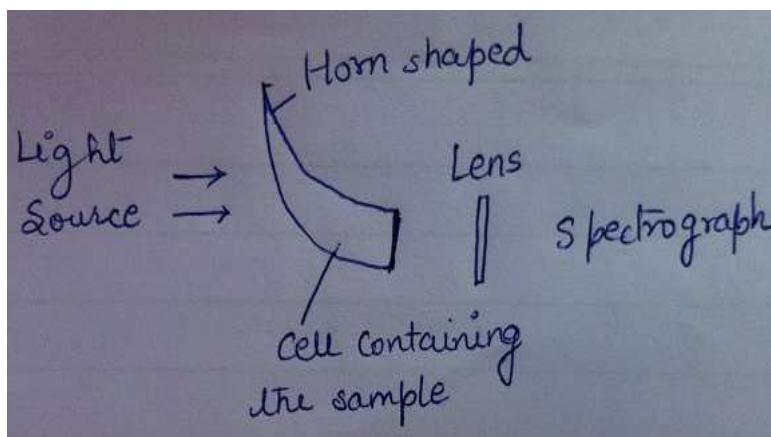 Horn shaped
Light
Source
Lens
Spectrograph
Cell containing
the sample